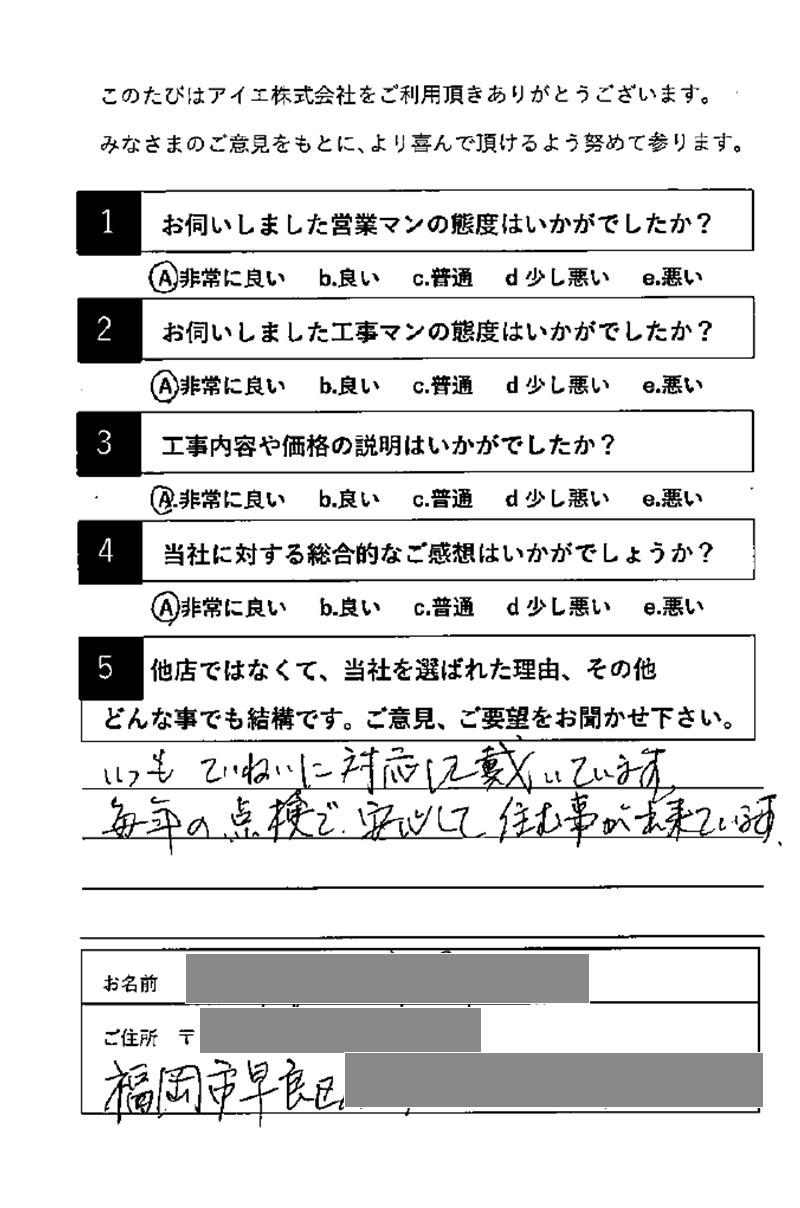 このたびはアイエ株式会社をご利用頂きありがとうございます。
みなさまのご意見をもとに、より喜んで頂けるよう努めて参ります。
1 お伺いしました営業マンの態度はいかがでしたか？
A 非常に良い b.良い c.普通 d 少し悪い e.悪い
2 お伺いしました工事マンの態度はいかがでしたか？
A 非常に良い b.良い c.普通 d 少し悪い e.悪い
3 工事内容や価格の説明はいかがでしたか？
A.非常に良い b.良い c.普通 d 少し悪い e.悪い
4 当社に対する総合的なご感想はいかがでしょうか？
A 非常に良い b.良い c.普通 d 少し悪い e.悪い
5 他店ではなくて、当社を選ばれた理由、その他
どんな事でも結構です。ご意見、ご要望をお聞かせ下さい。
いつも ていねいに対応して戴いています。
毎年の点検で、安心して住む事が出来ています。
お名前
ご住所 〒
福岡市早良区